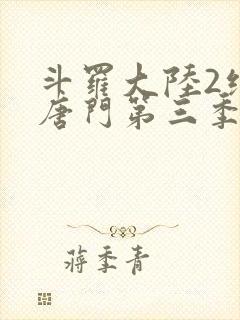 斗羅大陸2
唐門第三季
蔣季青